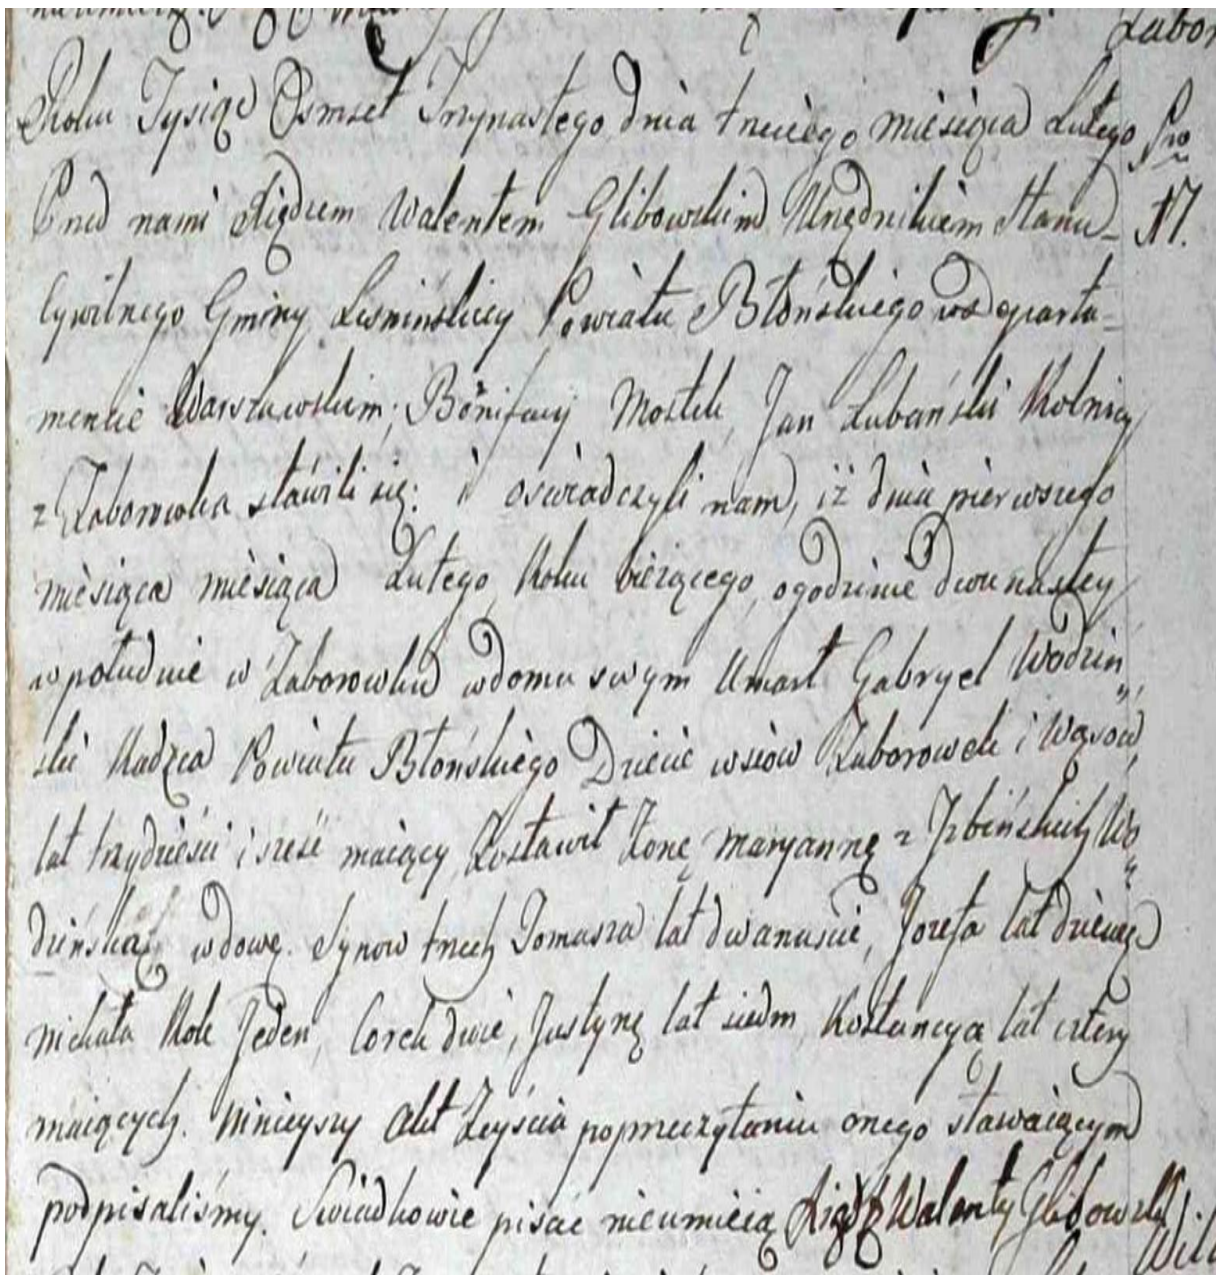 Roku Tysiąc Osmset Trzynastego dnia trzeciego miesiąca Lutego Nro
Przed nami Xiędzem Walentem Glibowskim Urzędnikiem Stanu- 17.
Cywilnego Gminy Leśnińskiey Powiatu Błońskiego w departa-
mencie Warszawskim; Bonifacy Mostek, Jan Łubański Rolnicy
z Zaborowka stawili się: i oświadczyli nam, iż dnia pierwszego
miesiąca miesiąca Lutego Roku bieżącego, o godzinie dwunastey
w południe w Zaborowku w domu swym Umarł Gabryel Wodziń„
ski Radzca Powiatu Błońskiego Dziedzic wsiów Zaborowek i Wąsów,
lat trzydzieści i sześć maiący, Zostawił Żonę Maryannę z Izbińskich Wo„
dzińską, wdowę. Synow trzech Tomasza lat dwanaście, Jozefa lat dziewięć
Michała Rok Jeden, Corek dwie, Justynę lat siedm, Kostancyą lat cztery
maiących. Ninieyszy Akt Zeyścia po przeczytaniu onego stawaiącym
podpisaliśmy. Swiadkowie pisać nieumieią Xiądz Walenty Glibowski